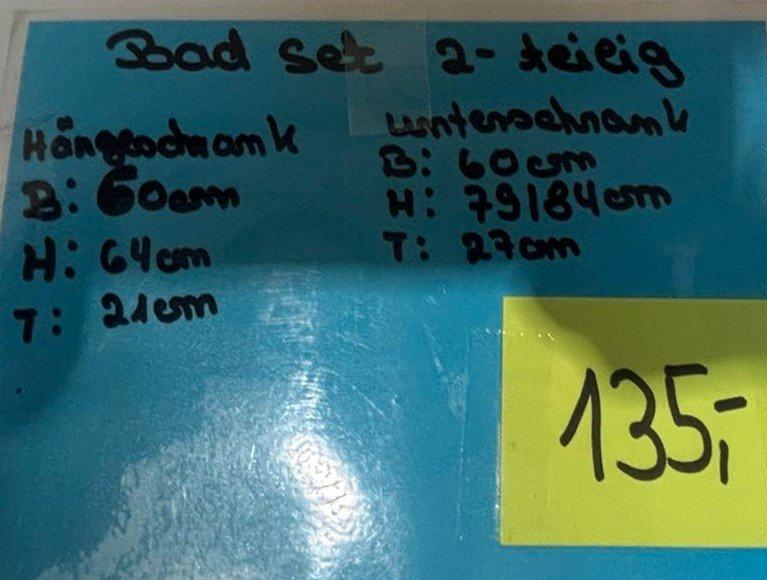 Bad Set 2-teilig
Hängeschrank
B: 60cm
H: 64cm
T: 21cm
Unterschrank
B: 60cm
H: 79/84cm
T: 27cm
135,-